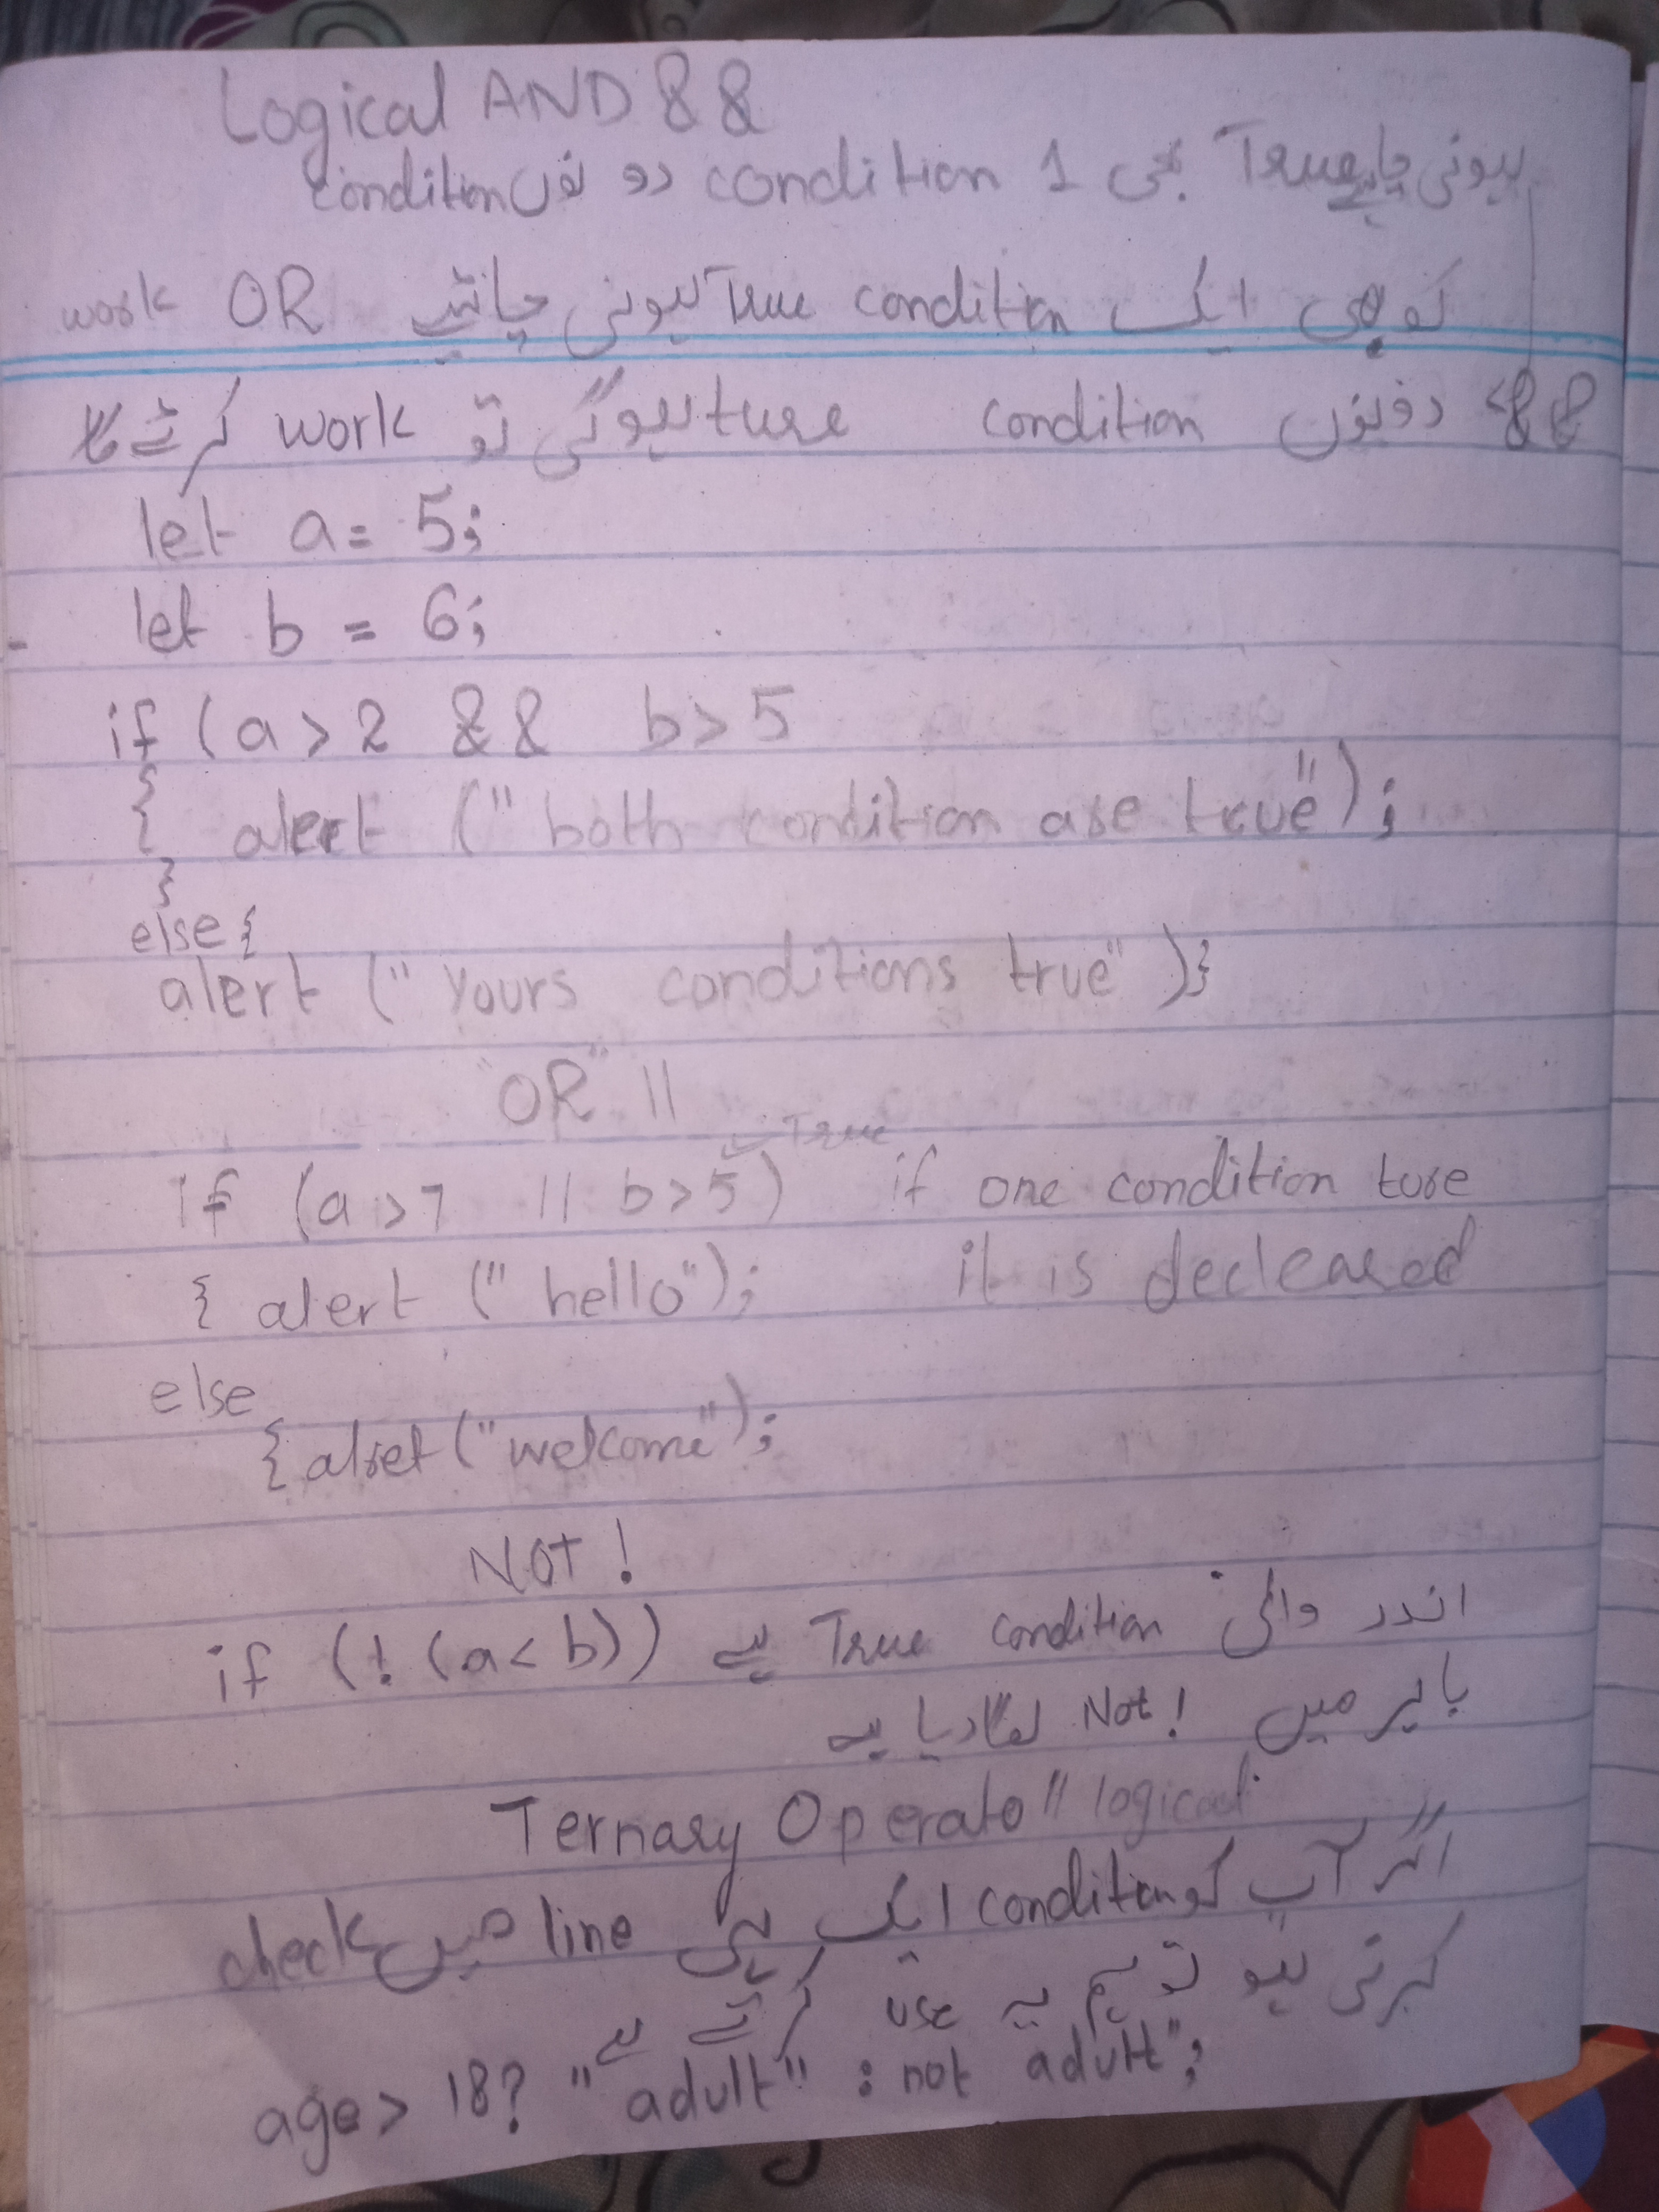 Logical AND &&
condition دونوں condition 1 بھی True ہونی چاہیے
work OR کوئی بھی ایک condition True ہونی چاہئیے
&& دونوں condition ture ہوگی تو work کرئے گا
let a = 5;
let b = 6;
if (a > 2 && b > 5
{ alert (" both condition are true");
}
else {
alert (" Yours conditions true" )}
"OR" ||
True
if (a > 7 || b > 5) if one condition ture
{ alert (" hello"); it is decleared
else
{ alret ("welcome");
NOT !
if (! (a < b)) اندر والی condition True ہے
باہر میں Not! لگا دیا ہے
Ternary Operato || logical
اگر آپ کو condition ایک ہی line میں check
کرنی ہو تو ہم یہ use کرتے ہے
age > 18? "adult" : not adult";